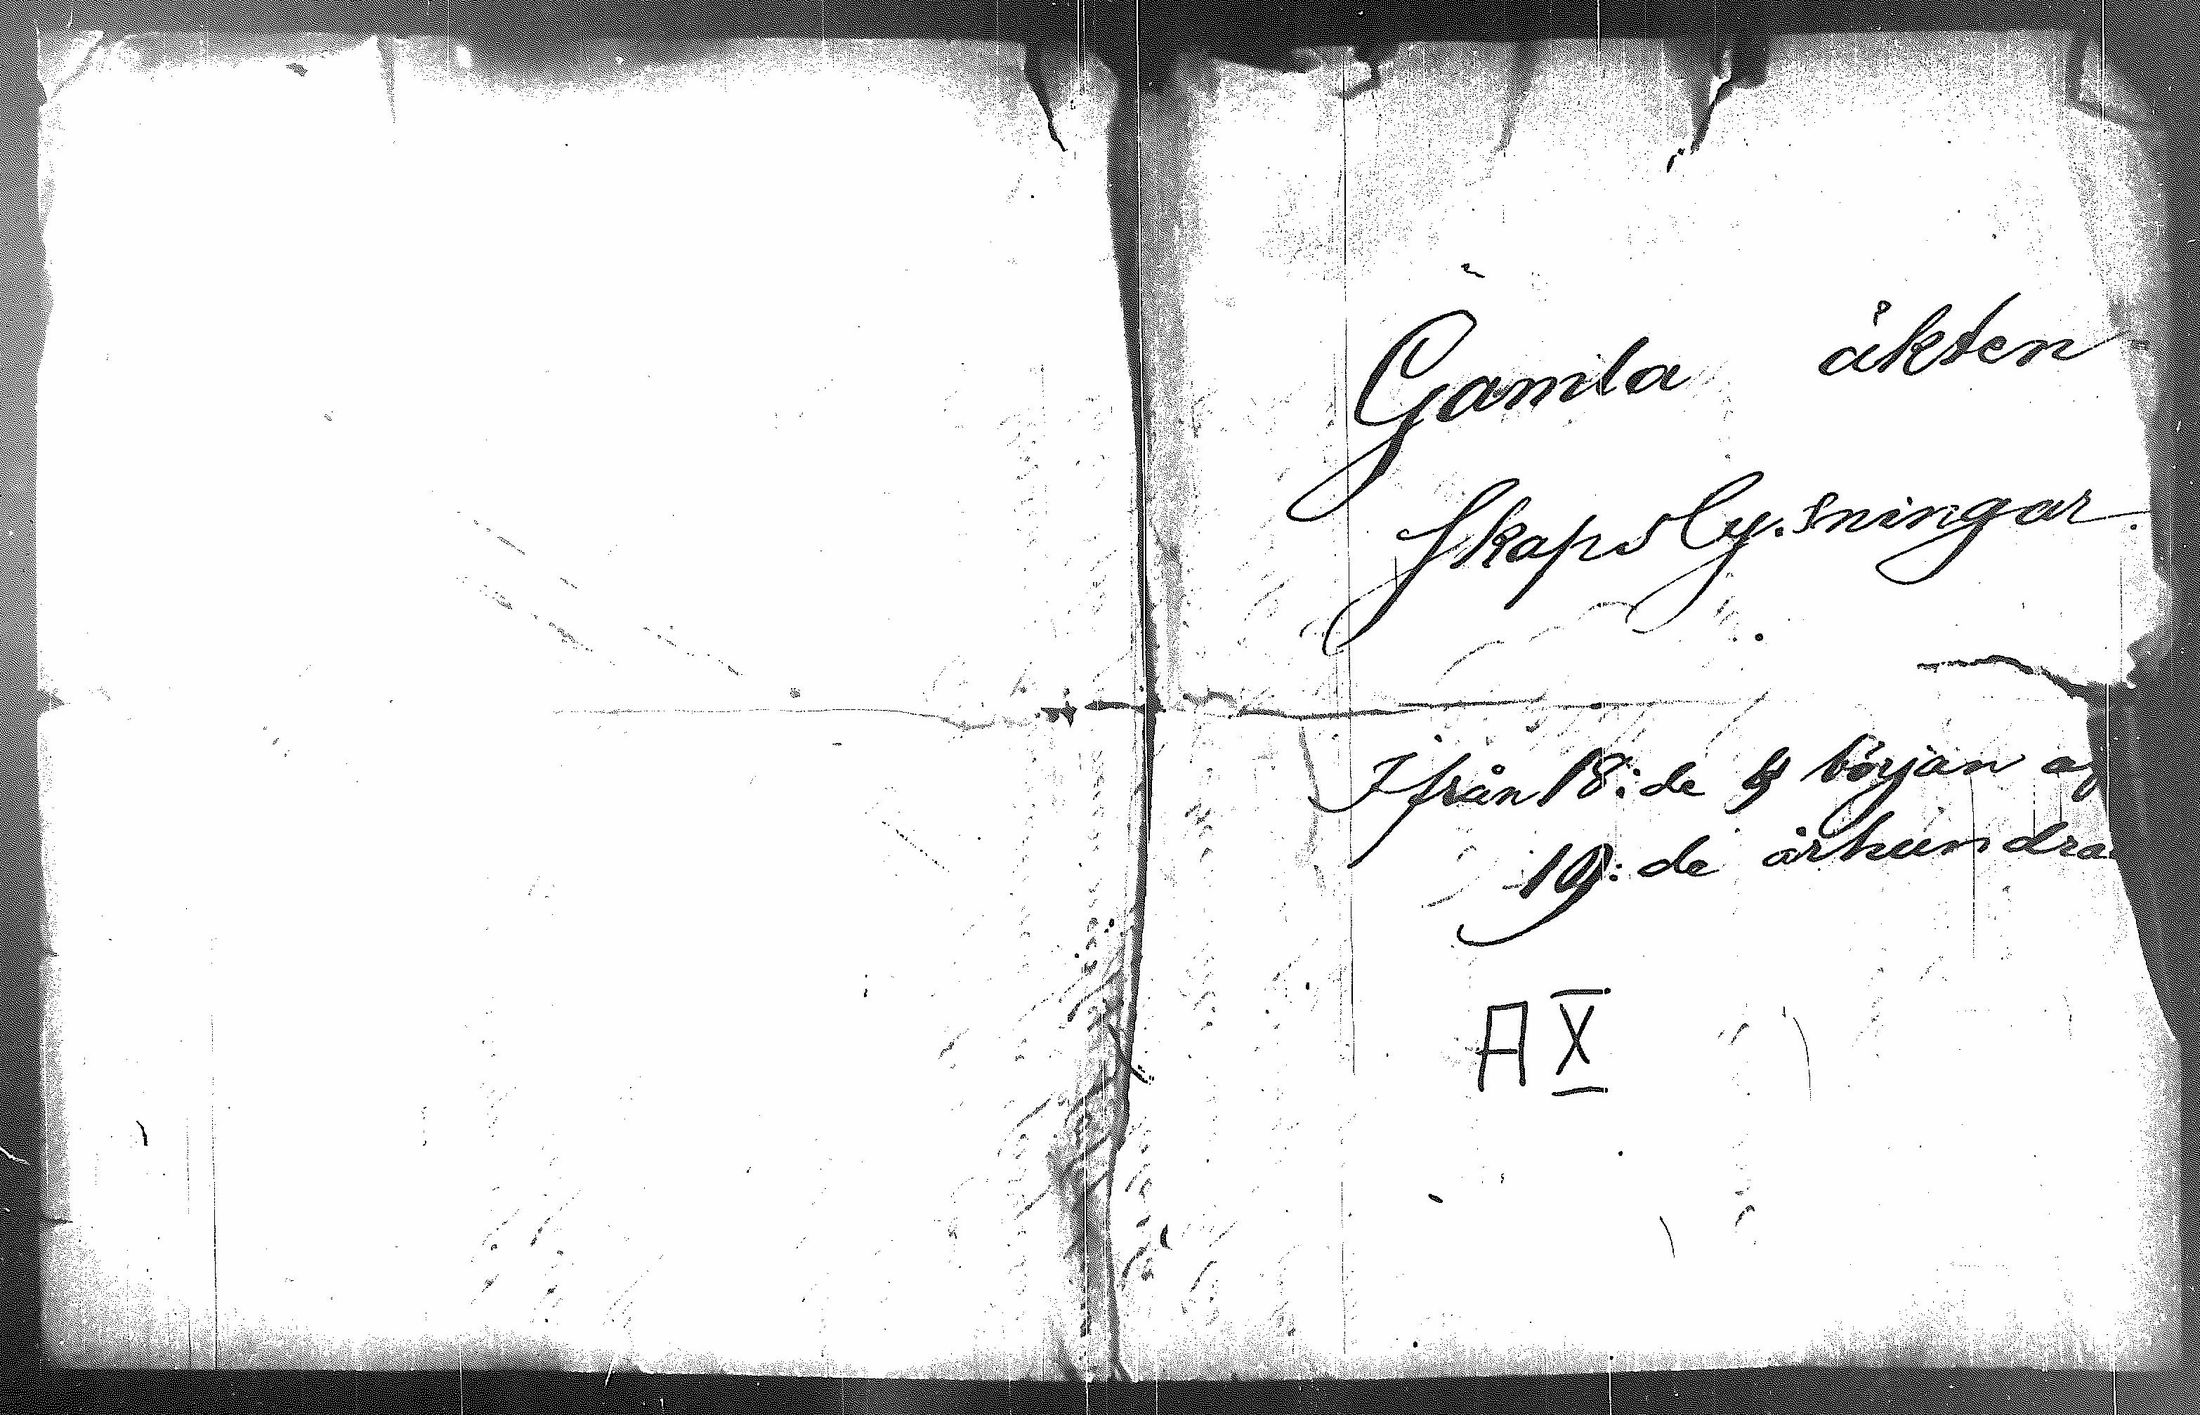 Gamla åkten
skapslysningar.
Ifrån 18:de & början af
19:de århundra
A X